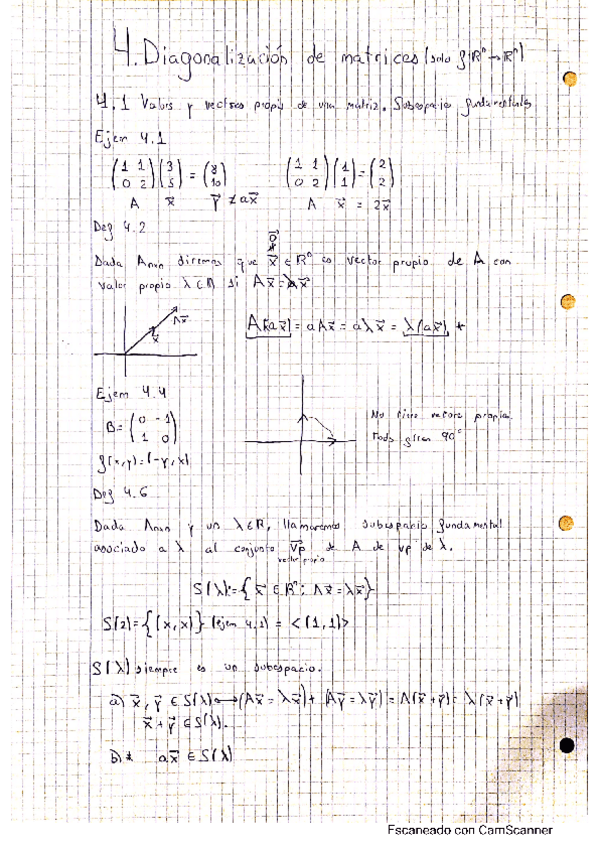 4. Diagonalización de matrices (solo f:ℝⁿ→ℝⁿ)
4.1 Valores y vectores propios de una matriz. Subespacios fundamentales
Ejem 4.1
(1 1; 0 2)(3; 5) = (8; 10)   (1 1; 0 2)(1; 1) = (2; 2)
A x⃗ y⃗ ≠ ax⃗   A x⃗ = 2x⃗
Def 4.2
0⃗
Dada Anxn diremos que x⃗ ∈ ℝⁿ es vector propio de A con
valor propio λ ∈ ℝ si Ax⃗ = λx⃗
Ax⃗
x⃗
A(ax⃗) = aAx⃗ = aλx⃗ = λ(ax⃗) *
Ejem 4.4
B = (0 -1; 1 0)
f(x,y) = (-y, x)
No tiene vectores propios.
Todos giran 90°
Def 4.6
Dada Anxn y un λ∈ℝ, llamaremos subespacio fundamental
asociado a λ al conjunto vp de A de vp de λ.
vector propio
S(λ) = {x⃗ ∈ ℝⁿ : Ax⃗ = λx⃗}
S(2) = {(x,x)} (ejem 4.1) = <(1,1)>
S(λ) siempre es un subespacio.
a) x⃗, y⃗ ∈ S(λ) ⟷ (Ax⃗ = λx⃗) + (Ay⃗ = λy⃗) = A(x⃗+y⃗) = λ(x⃗+y⃗)
x⃗ + y⃗ ∈ S(λ).
b) * ax⃗ ∈ S(λ)
Escaneado con CamScanner